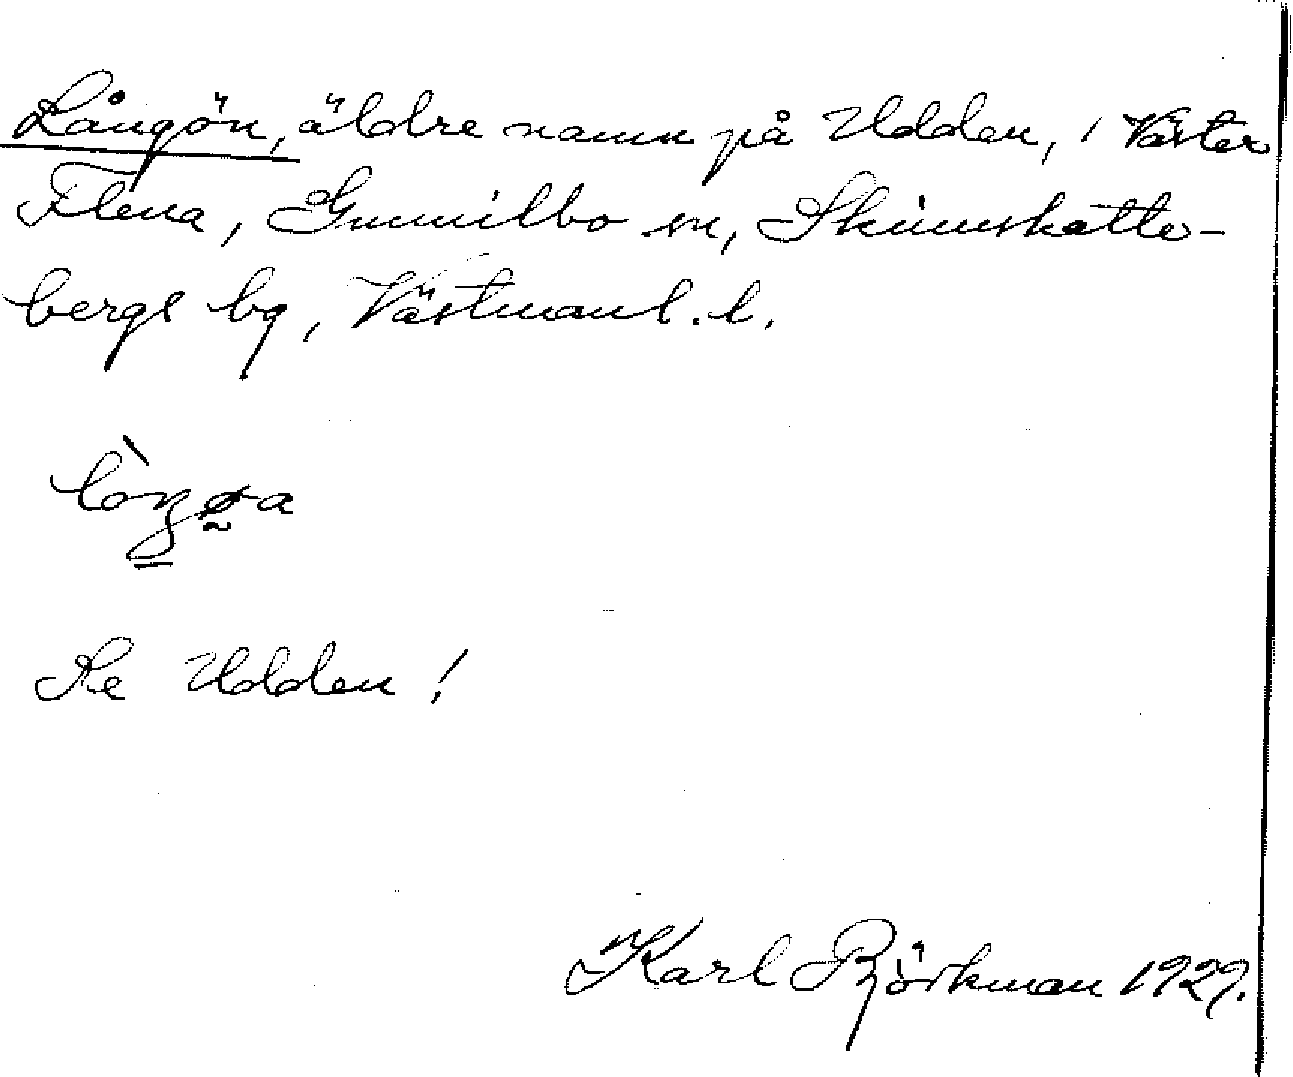 Långön, äldre namn på Udden, i Väster
Flena, Gunnilbo sn, Skinnskatte-
bergs bg, Västmanl. l.
Se Udden!
Karl Björkman 1929.